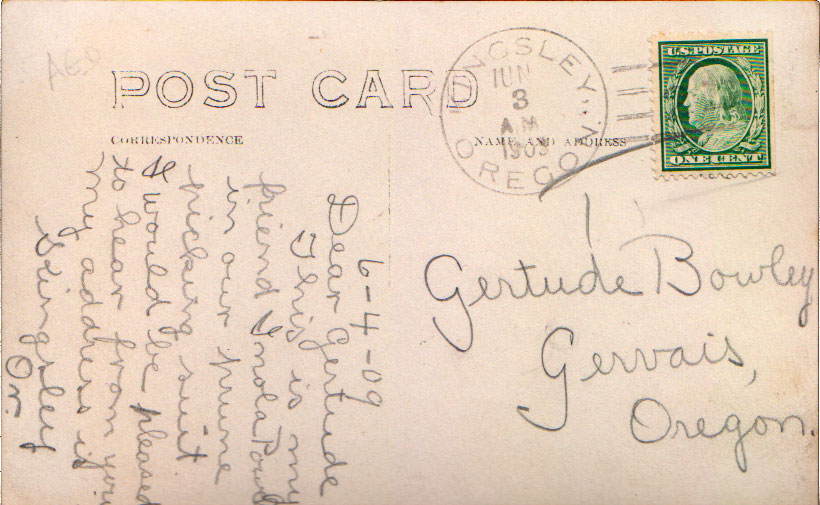 POST CARD
CORRESPONDENCE
NAME AND ADDRESS
KINGSLEY
JUN
3
A M
1909
OREGON.
U.S. POSTAGE
ONE CENT
Gertude Bowley
Gervais,
Oregon.
6-4-09
Dear Gertude
This is my
friend Inola
in our prune
picking suit
I would be pleased
to hear from you
my address is
Kingsley
Or.